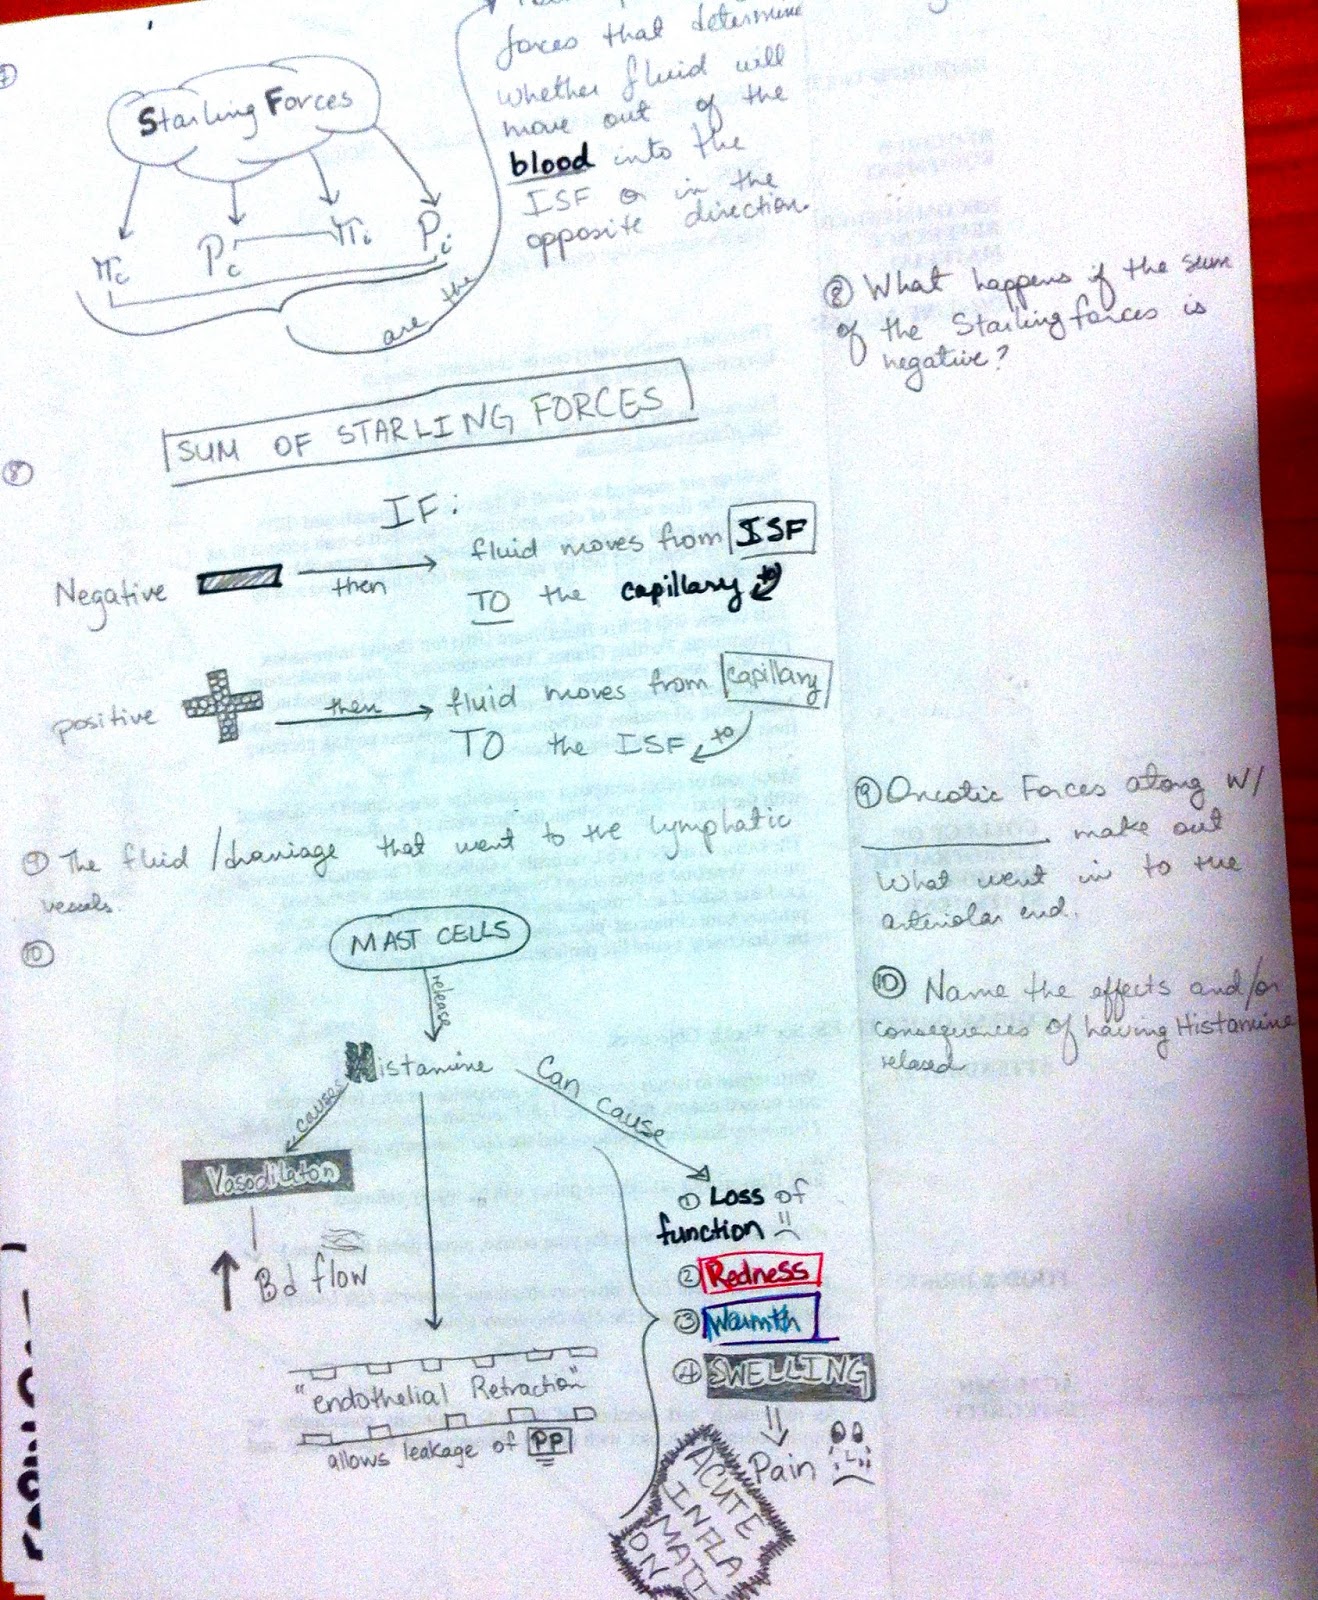 forces that determine
whether fluid will
move out of the
blood into the
ISF or in the
opposite direction.
Starling Forces
πc Pc πi Pi
are the
⑧ What happens if the sum
of the Starling forces is
negative?
SUM OF STARLING FORCES
⑧
IF:
Negative then fluid moves from ISF
TO the capillary to
positive then fluid moves from capillary
TO the ISF to
⑨ Oncotic Forces along w/
__________ make out
what went in to the
arteriolar end.
⑨ The fluid/draniage that went to the lymphatic
vessels.
⑩
MAST CELLS
release
Histamine
⑩ Name the effects and/or
consequences of having Histamine
relased
causes
Can cause
Vasodilaton
Bd flow
① Loss of
function
② Redness
③ Warmth
④ SWELLING
Pain
"endothelial Retraction"
allows leakage of PP
ACUTE
INFLA
MATI
ON